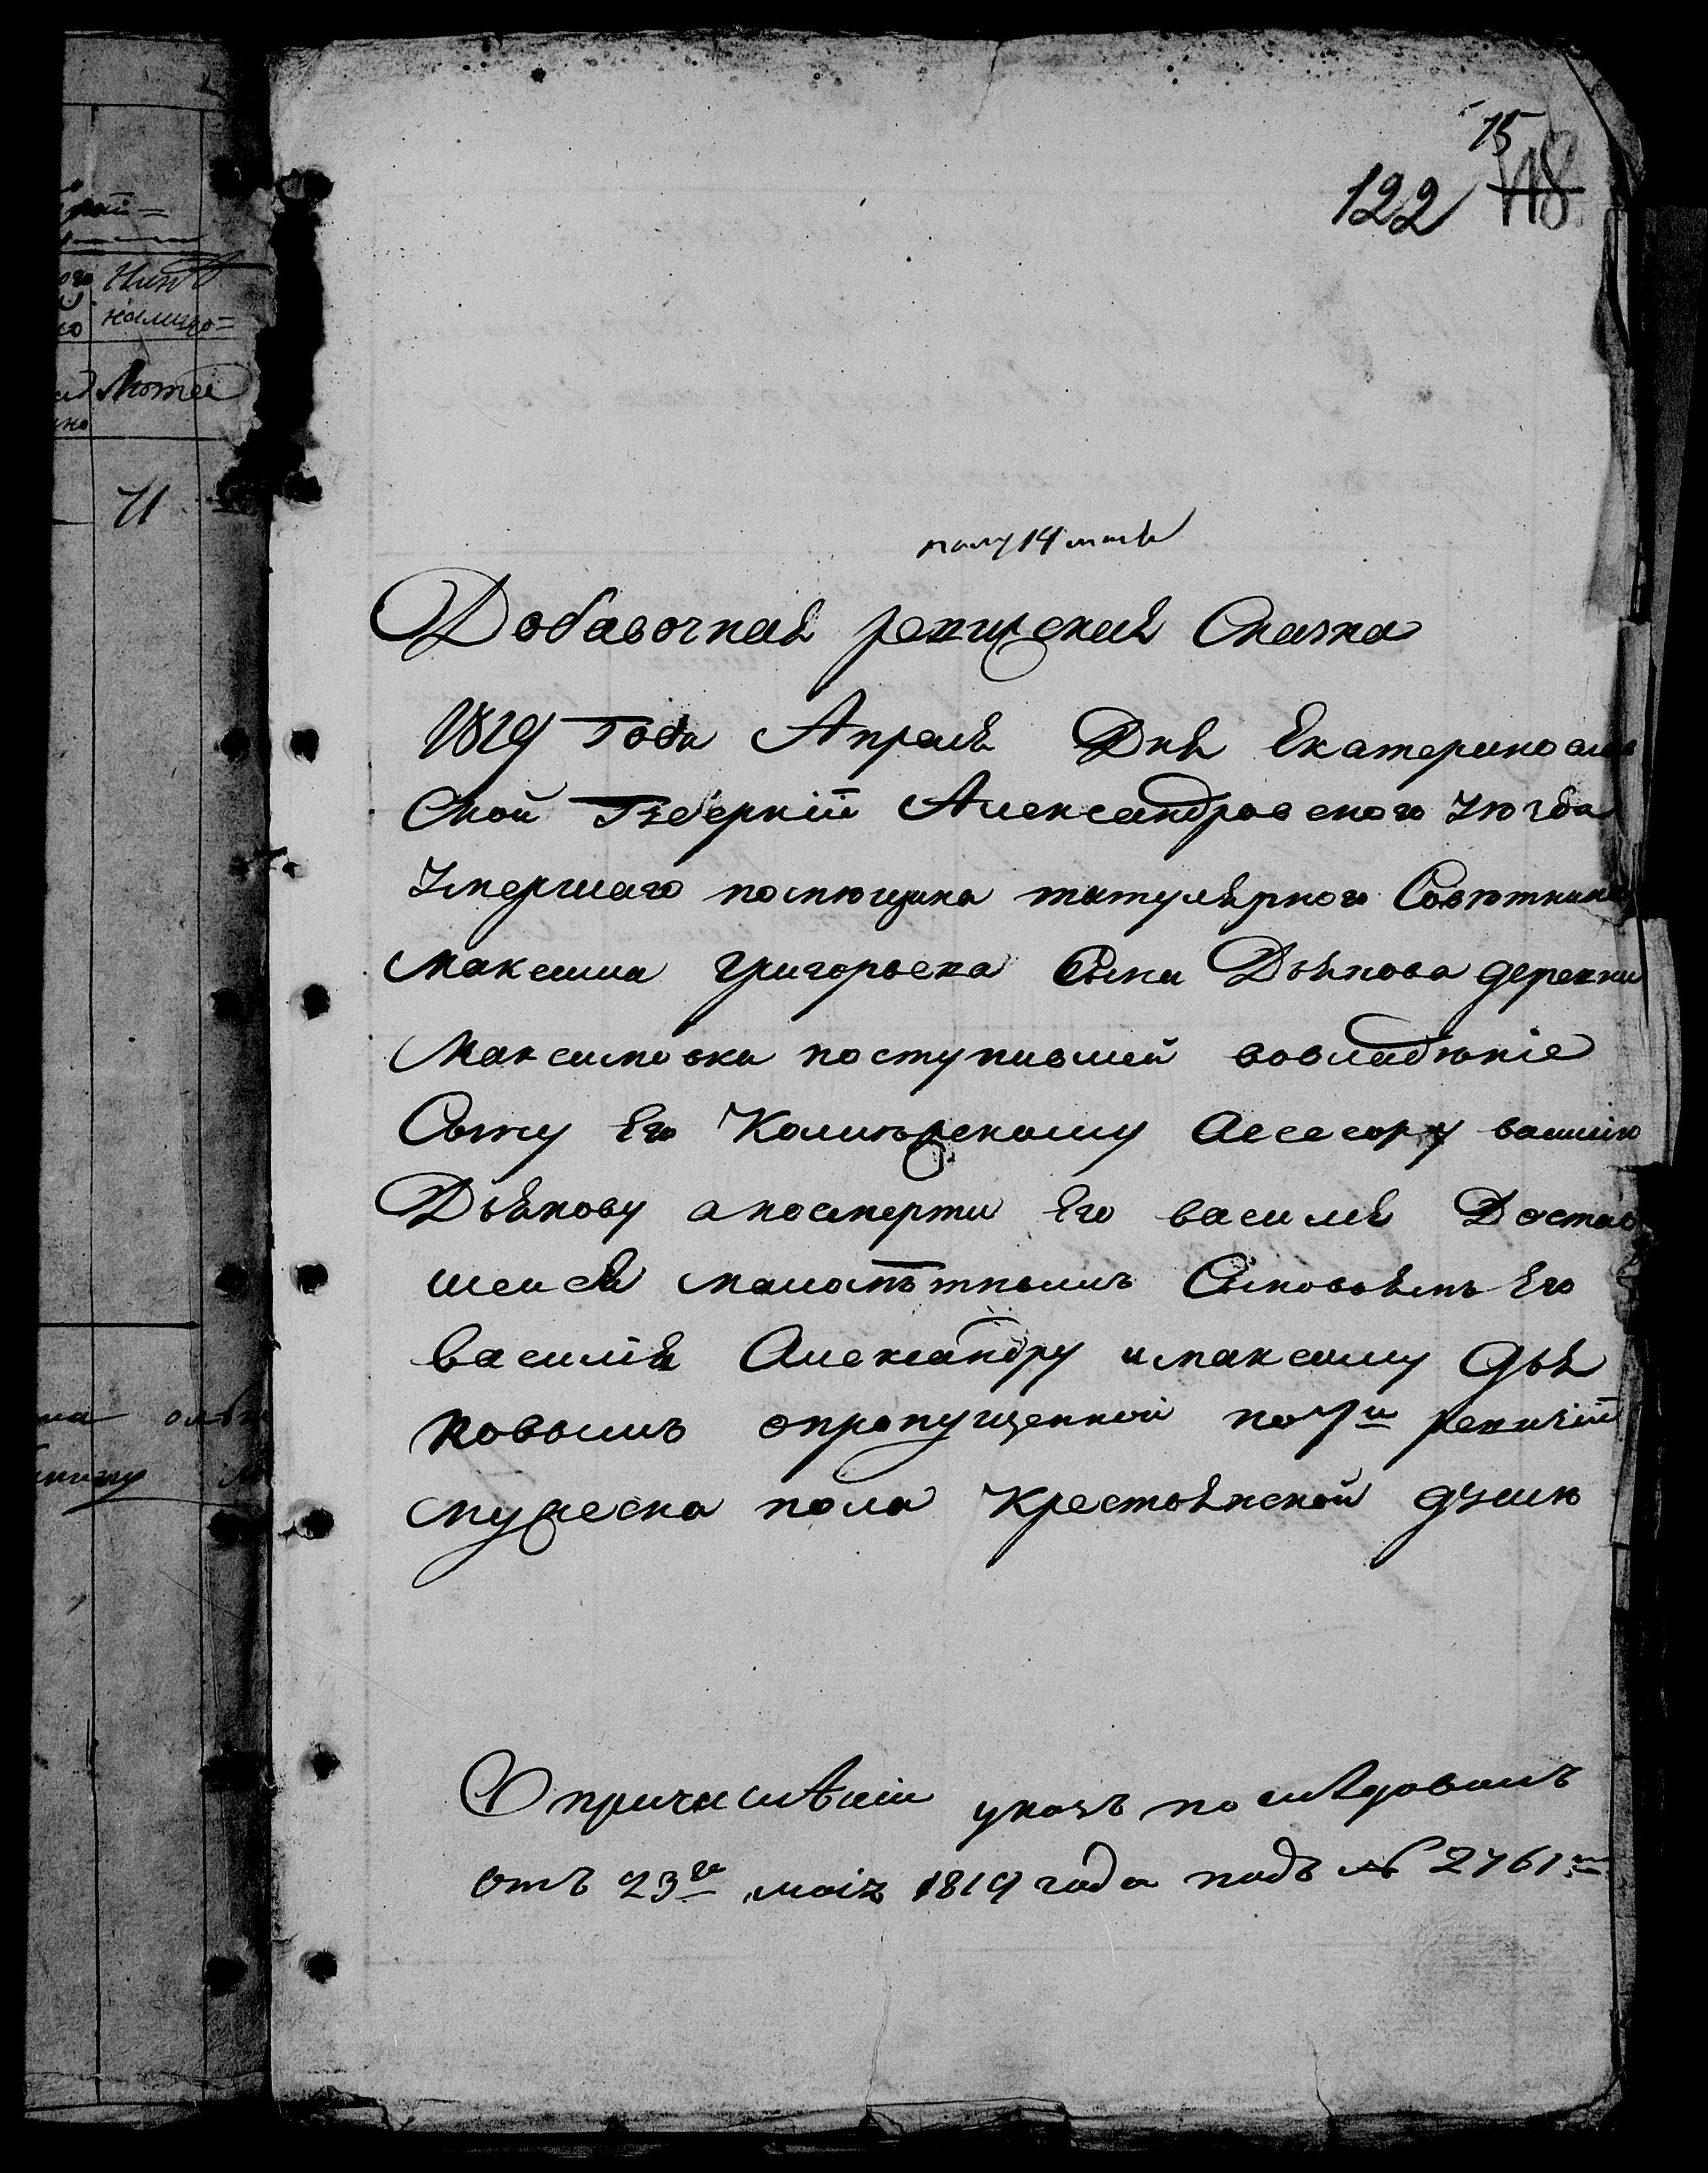 15
122 118
полу 14 мая
Добавочная ревижская Сказка
1819 Года Апреля Дня Екатеринослав
Ской Губернїи Александровского Уѣзда
Умершаго помѣщика титулярного Совѣтника
Максима Григорьева Сына Дьякова деревни
Максимовки поступившей вовладѣніе
Сыну Его Колижскому Асесору василию
Дьякову апосмерти Его василия Достав
шейся малолѣтнымъ Сыновьямъ Его
василія Александру имаксиму Дья
ковымъ опропущенной по 7й ревизіи
мужеска пола Крестьянской душѣ
О причисленіи указъ последовалъ
отъ 23го маія 1819 года подъ № 2761м
Нинѣ
налицо=
Лютei
11